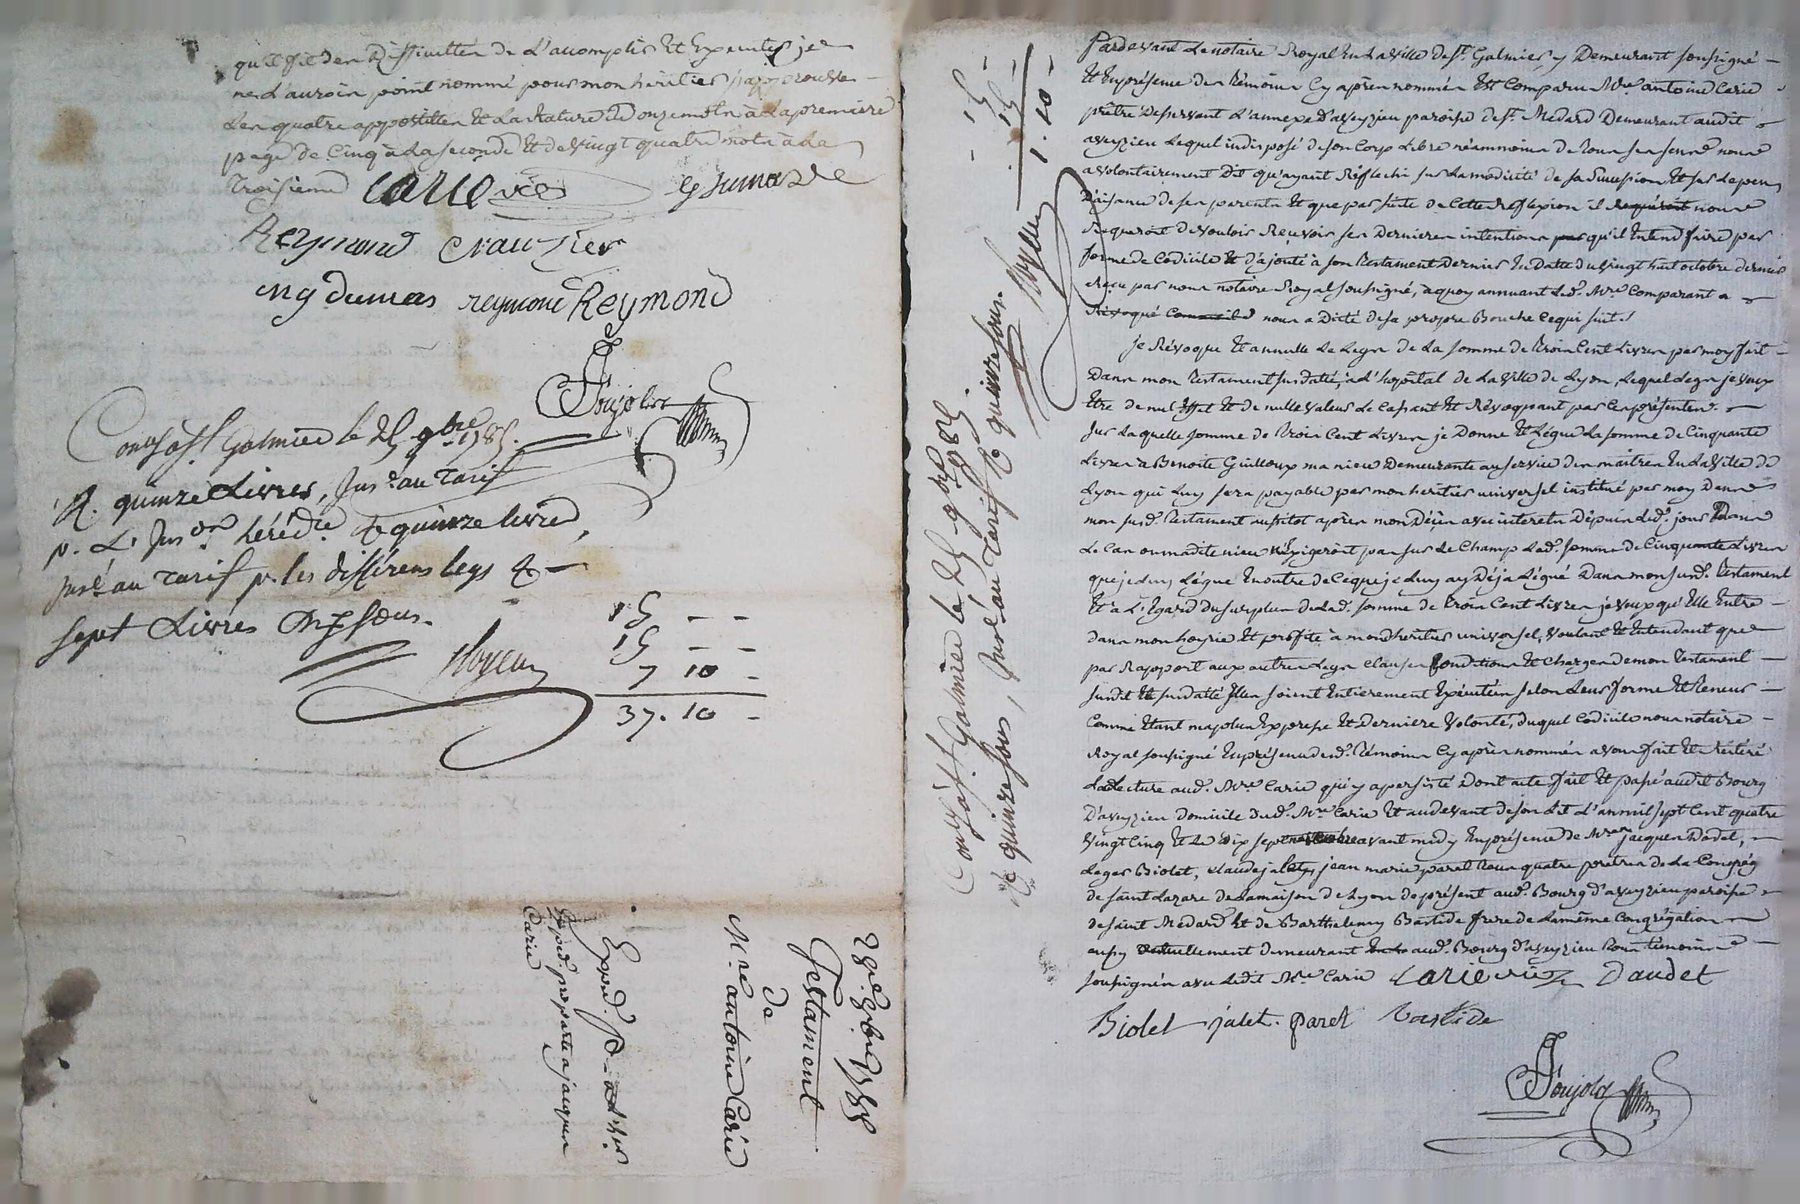 qu'il fit des difficultés de l'accomplir et Executer je
ne d'auroir point nommé pour mon heritier j'approuve
Les quatre appostilles Et La Rature de onze mots à La premiere
page de Cinq à La seconde Et de vingt quatre mots à La
Troisieme Carie vic.
Reymond Crautier
mg dumas reymond Reymond
Poujolat
Con.lé à St. Galmier le 25 9bre 1785.
R. quinze Livres, Suivt. au Tarif
p. L'Insti.on hérédre. & quinze livres,
Suivt. au Tarif pr. les différens legs &
sept Livres dix sous.
15 - -
15 - -
7 10 -
37. 10 -
28e. 8bre 1785
Testament
De
Mre. antoine Carie
Expéd.
Expéd. par parte a jacques
Carie
- 15 -
- 15 -
1. 10 -
Con.lé à St. Galmier le 25 9bre 1785.
R. quinze sous, Suivt. au Tarif & quinze sous.
Pardevant Le notaire Royal En La Ville de St. Galmier, y Demeurant soussigné
Et En présence des témoins Cy après nommés Est Comparu Mre. antoine Carie
prêtre Desservant L'annexe d'aveyzieu paroisse de St. Medard Demeurant audit
aveyzieu Lequel indisposé de son Corp Libre néanmoins de tous ses sens nous
a volontairement Dit qu'ayant Réflechi sur La modicité de sa Succession Et sur Le peu
D'aisance de ses parents Et que par suite de Cette Reflexion il requéroit nous
Requeroit de vouloir Recevoir ses Dernieres intentions qu'il Entend faire par
forme de Codicile Et d'ajouté à son Testament Dernier En Datte du vingt huit octobre dernier
Reçu par nous notaire Royal soussigné, à quoy annuant Led. Mre. Comparant a
Révoqué nous a Dicté de sa propre Bouche Ce qui suit.
Je Révoque Et annulle Le Legs de La somme de Trois Cent Livres par moy fait
Dans mon Testament susdatté, à L'hopital de La Ville de Lyon, Lequel Legs je veux
Etre de nul Effet Et de nulle valeur Le Cassant Et Révoquant par Ces présentes.
Sur La quelle somme de Trois Cent Livres je Donne Et Lègue La somme de Cinquante
Livres à Benoite Guilloux ma niece Demeurante au service des maitres En La Ville de
Lyon qui Luy sera payable par mon heritier universel institué par moy Dans
mon susd. Testament aussitot après mon Décès avec interets Dépuis Led. jour Dans
Le Cas ou madite niece n'Exigeroit pas sur Le Champ Lad. somme de Cinquante Livres
que je Luy Lègue En outre de Ce que je Luy ay Déja Légué Dans mon susd. Testament
Et à L'Egard du surplus de Lad. somme de Trois Cent Livres je veux qu'Elle Entre
dans mon hoyrie Et profite à mond. heritier universel, voulant Et Entendant que
par Rapport aux autres Legs Clauses Conditions Et Charges de mon Testament
susdit Et susdatté Elles soient Entierement Exécutées selon Leur forme Et teneur
Comme Etant ma plus Expresse Et Derniere Volonté, duquel Codicile nous notaire
Royal soussigné En présence desd. témoins Cy après nommés avons fait Et Réitéré
La Lecture aud. Mre. Carie qui y a persisté Dont acte fait Et passé audit Bourg
D'aveyzieu domicile dud. Mre. Carie Et au devant de son Lit L'an mil sept Cent quatre
vingt Cinq Et Le Dix sept avant midy En présence de Mres. jacques Dodet,
Leger Biolet, Claude jalety, jean marie paret Tous quatre prêtres de La Congrég
de saint Lazare de La maison de Lyon de présent aud. Bourg d'aveyzieu paroisse
de saint Medard Et de Barthelemy Bastide frere de La même Congrégation
aussy actuellement demeurant aud. Bourg d'aveyzieu Tous témoins
soussignés avec Ledit Mre. Carie Carie vic. Daudet
Biolet jalet. paret Bastide
Poujolat